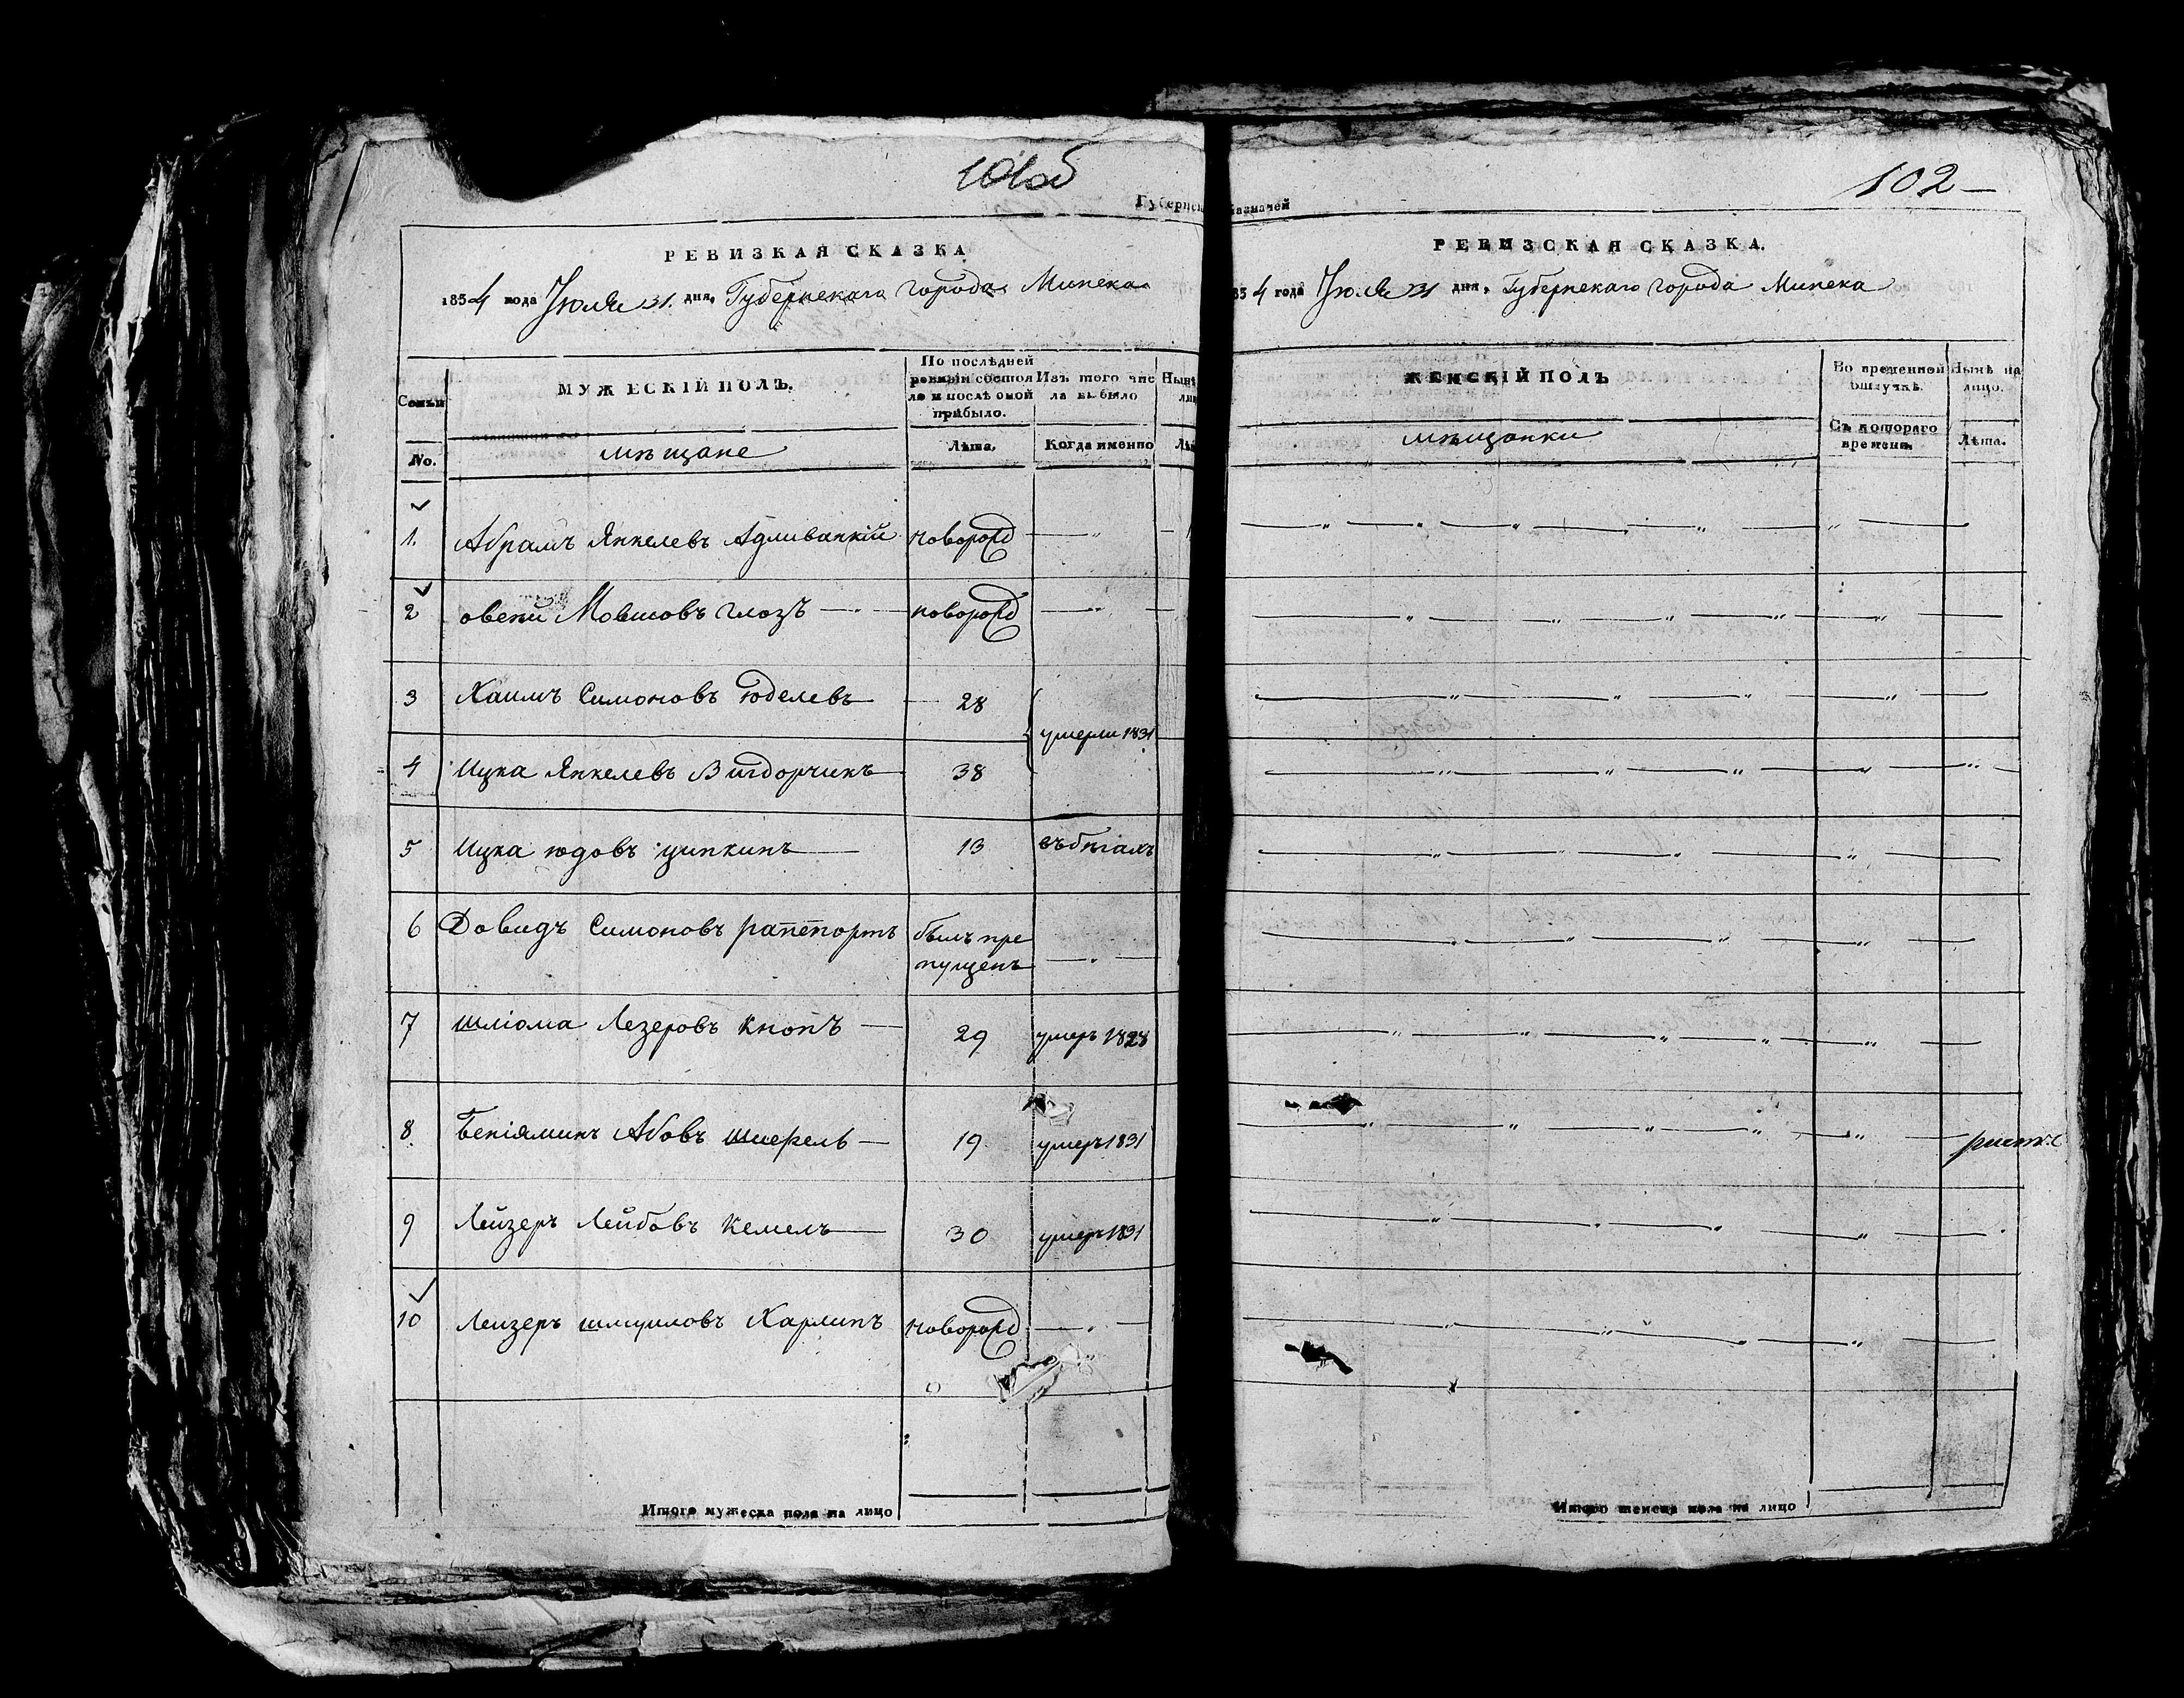 101об
Губернск
РЕВИЗКАЯ СКАЗКА
1834 года Іюля 31. дня, Губернскаго города Минска
Семьи
МУЖЕСКІЙ ПОЛЪ.
По послѣдней ревизіи состояло и послѣ оной прибыло.
Изъ того числа выбыло
Нынѣ
No.
мѣщане
Лѣта.
Когда именно
1. Абрамъ Янкелевъ Адливанкій новорожд — „ —
2 овсей Мовшовъ глозъ — „ — новорожд — „ —
3 Хаимъ Симоновъ Юделевъ — 28
умерли 1831
4 Ицка Янкелевъ Вигдорчикъ — 38
5 Ицка юдовъ ципкинъ — 13 збѣгалъ
6 Довидъ Симоновъ раппепортъ былъ пре
пущенъ — „ —
7 шліома Лезеровъ Кнопъ — 29 умеръ 1828
8. Беніяминъ Абовъ — 19 умеръ 1831
9 Лейзеръ Лейбовъ Кемель — 30 умеръ 1831
10 Леизеръ шмуиловъ Карлинъ новорожд — „ —
Итого мужеска пола на лицо
102 —
Казначей
РЕВИЗСКАЯ СКАЗКА.
34 года Іюля 31 дня, Губернскаго города Минска
ЖЕНСКІЙ ПОЛЪ
Во временной отлучкѣ.
Нынѣ на лицо.
мѣщанки
Съ котораго времени.
Лѣта.
Итого женска пола на лицо